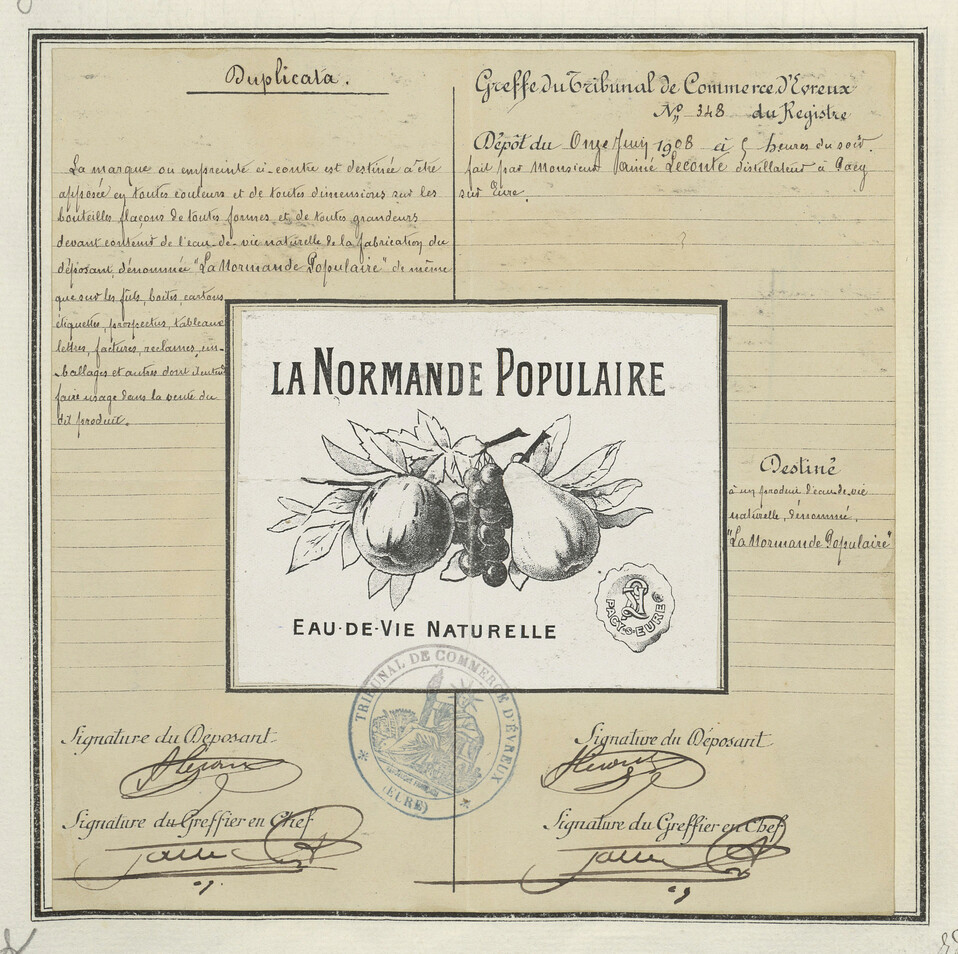 Duplicata.
La marque ou empreinte ci-contre est destinée à être
apposée en toutes couleurs et de toutes dimensions sur les
bouteilles flacons de toutes formes et de toutes grandeurs
devant contenir de l'eau-de-vie naturelle de la fabrication du
déposant, dénommée "La Normande Populaire" de même
que sur les fûts, boîtes, cartons
étiquettes, prospectus, tableaux
lettres, factures, réclames, em-
ballages et autres dont il entend
faire usage dans la vente du
dit produit.
Greffe du Tribunal de Commerce d'Evreux
No. 348 du Registre
Dépôt du Onze Juin 1908 à 5 heures du soir.
fait par Monsieur Aimé Leconte distillateur à Pacy
sur Eure.
LA NORMANDE POPULAIRE
EAU-DE-VIE NATURELLE
PACY-S-EURE
Destiné
à un produit d'eau-de-vie
naturelle, dénommé,
"La Normande Populaire"
TRIBUNAL DE COMMERCE D'ÉVREUX
(EURE)
Signature du Déposant
Signature du Greffier en Chef
Signature du Déposant
Signature du Greffier en Chef